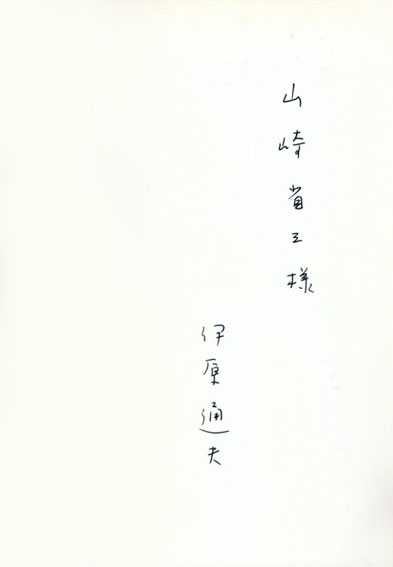 山崎省三様
伊原通夫